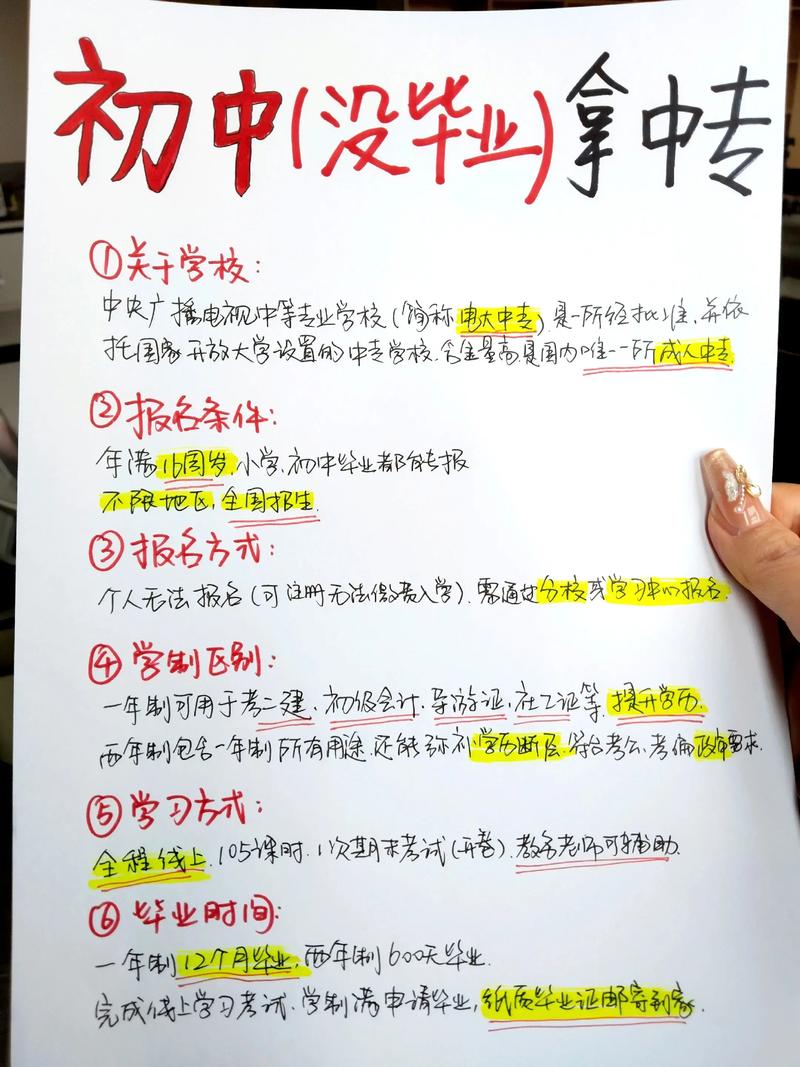 初中(没毕业)拿中专
①关于学校:
中央广播电视中等专业学校(简称电大中专).是一所经批准、并依
托国家开放大学设置的中专学校.含金量高.是国内唯一一所成人中专.
②报名条件:
年满16周岁.小学.初中毕业都能报
不限地区,全国招生.
③报名方式:
个人无法报名(可注册无法缴费入学).需通过分校或学习中心报名.
④学制区别:
一年制可用于考二建、初级会计.导游证,社工证等.提升学历.
两年制包含一年制所有用途.还能弥补学历断层.符合考公、考编政审要求.
⑤学习方式:
全程线上.105课时.1次期末考试(开卷).教务老师可辅助.
⑥毕业时间:
一年制12个月毕业,两年制600天毕业.
完成线上学习考试.学制满申请毕业,纸质毕业证邮寄到家.